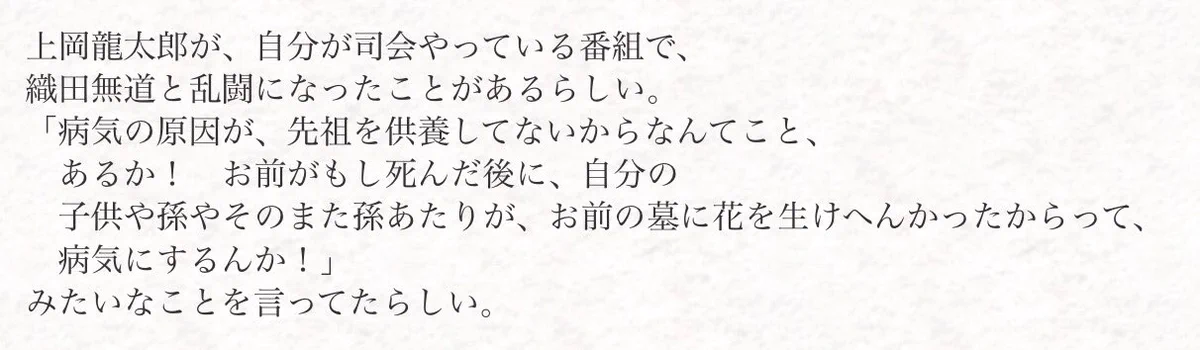 上岡龍太郎が、自分が司会やっている番組で、
織田無道と乱闘になったことがあるらしい。
「病気の原因が、先祖を供養してないからなんてこと、
　あるか！　お前がもし死んだ後に、自分の
　子供や孫やそのまた孫あたりが、お前の墓に花を生けへんかったからって、
　病気にするんか！」
みたいなことを言ってたらしい。